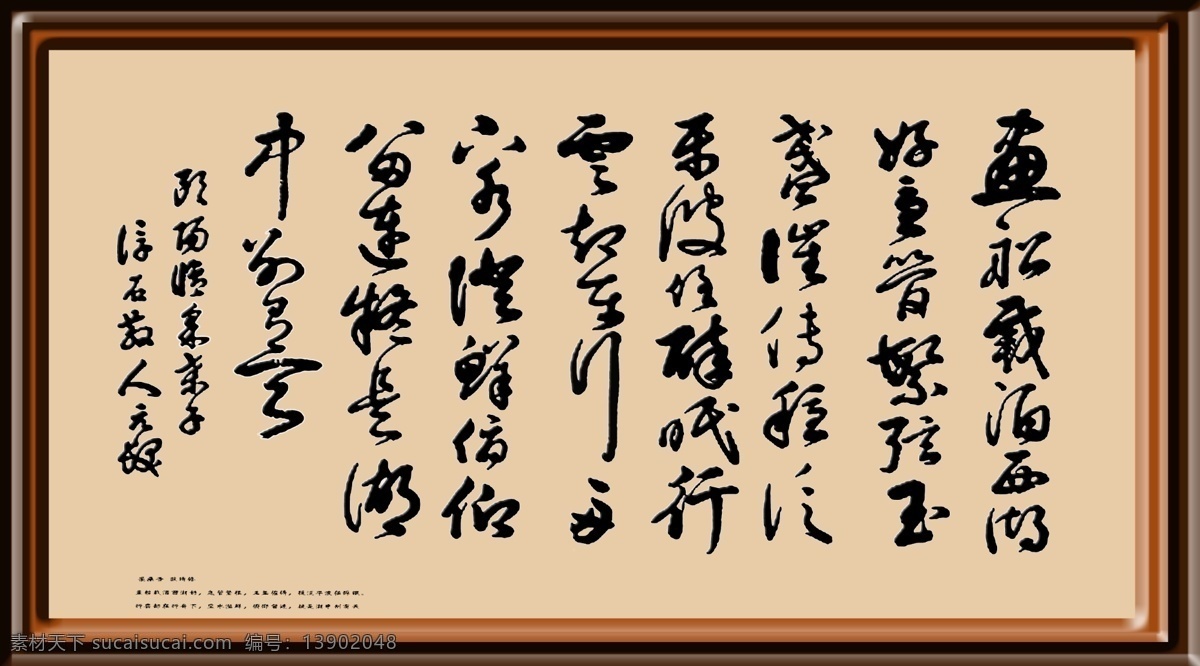 畫船載酒西湖
好急管繁弦玉
盞催傳穩泛
平波任醉眠行
雲却在行舟
下空水澄鮮俯仰
留連疑是湖
中别有天
欧陽脩采桑子
石散人元
采桑子 欧阳修
画船载酒西湖好，急管繁弦，玉盏催传，稳泛平波任醉眠。
行云却在行舟下，空水澄鲜，俯仰留连，疑是湖中别有天
素材天下 sucaisucai.com 编号：13902048